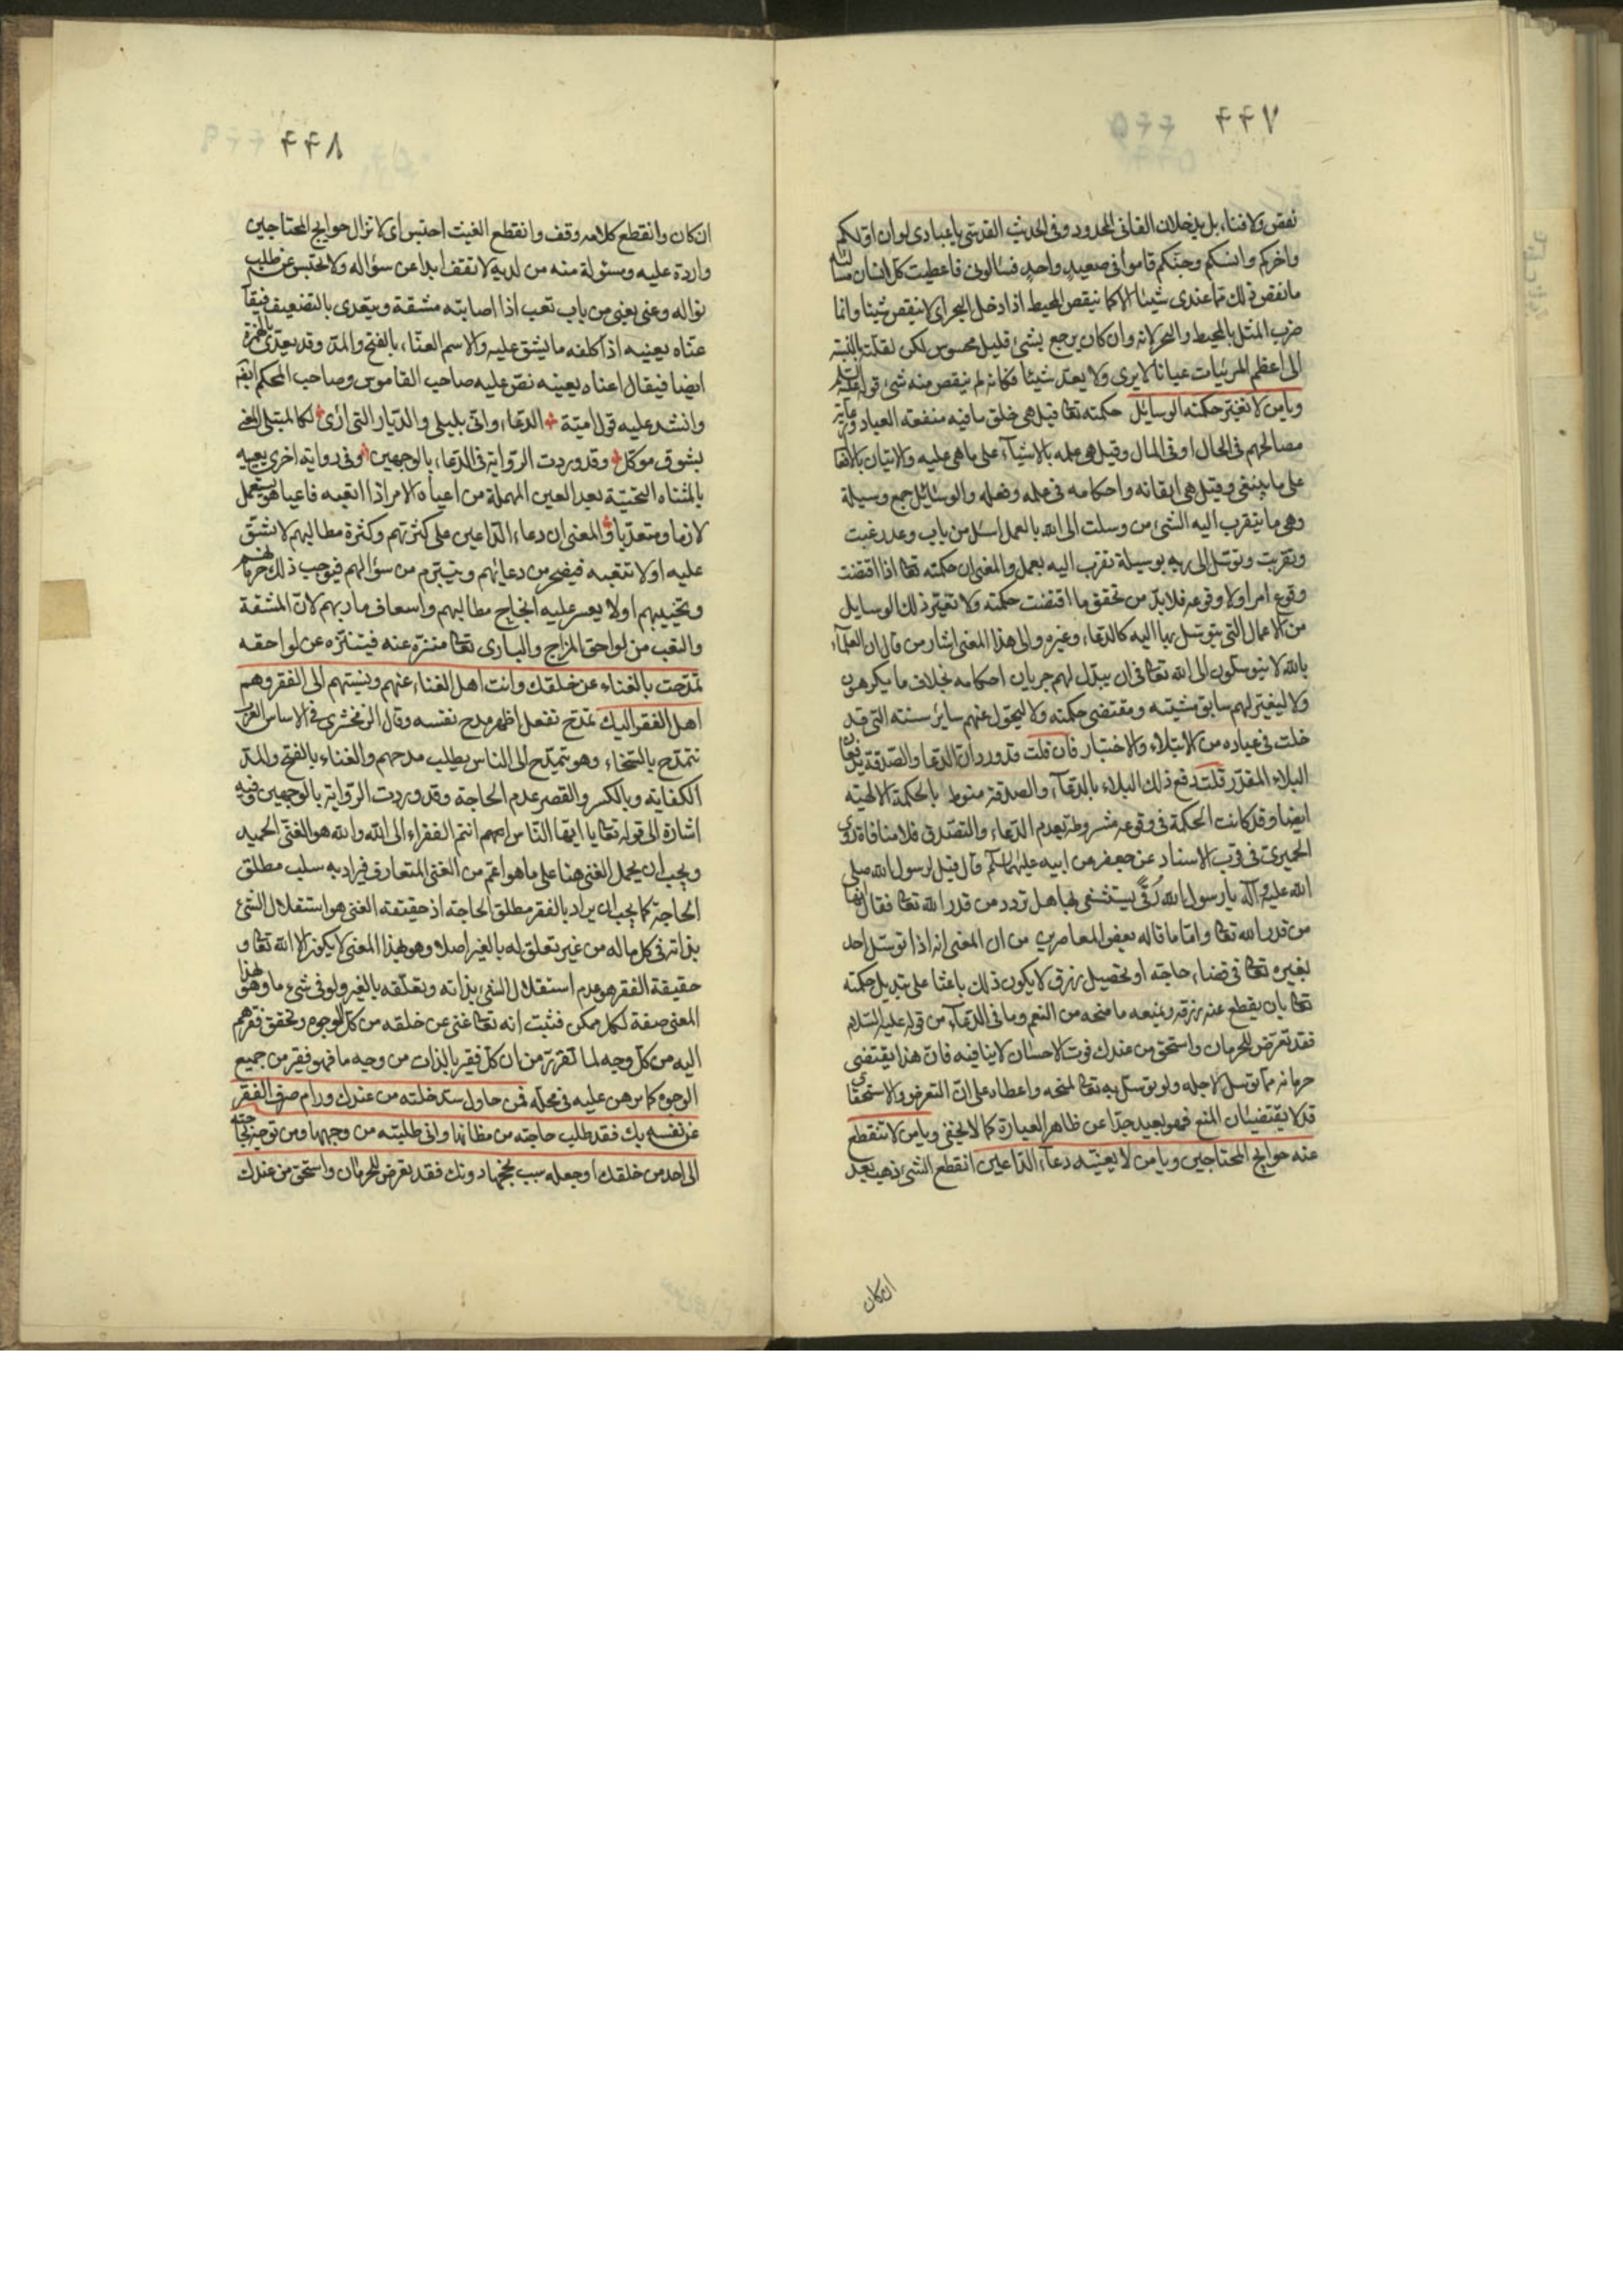 ٤٤٧
نقص ولا فناء بل يدخلان الفانى المحدود وفى الحديث القدسى ياعبادى لوان اولكم
واخركم وانسكم وجنكم قاموا فى صعيد واحد فسئالونى فاعطيت كل انسان مسئالته
مانقص ذلك مما عندى شيئا الا كما ينقص المحيط اذا دخل البحر اى لا ينقص شيئا وانما
ضرب المثل بالمحيط والبحر لانه وان كان يرجع بشئ قليل محسوس لكن لقلته بالنسبة
الى اعظم المرئيات عيانا لا يرى ولا يعد شيئا فكانه لم ينقص منه شئ قوله عليه السلم
ويامن لا تغير حكمته الوسائل حكمته تعا قيل هى خلق ما فيه منفعته العباد ورعاية
مصالحهم فى الحال او فى المال وقيل هى علمه بالاشيآء على ماهى عليه والاتيان بالافعا
على ماينبغى وقيل هى اتقانه واحكامه فى علمه وفعله والوسائل جمع وسيلة
وهى ما يتقرب اليه الشئ من وسلت الى الله بالعمل اسل من باب وعد رغبت
وتقربت وتوسل الى ربه بوسيلة تقرب اليه بعمل والمعنى ان حكمته تعا اذا اقتضت
وقوع امر اولا وقوعه فلابد من تحقق ما اقتضت حكمته ولا تغير ذلك الوسايل
من الاعمال التى يتوسل بها اليه كالدعاء وغيره والى هذا المعنى اشار من قال ان العلمآء
بالله لا يتوسلون الى الله تعا فى ان يبدل لهم جريان احكامه بخلاف ما يكرهون
ولا ليغير لهم سابق مشيته ومقتضى حكمته ولا ليحول عنهم سائر سنته التى قد
خلت فى عباده من الابتلاء والاختبار فان قلت قد ورد ان الدعا والصدقة يدفعان
البلاء المقدر قلت دفع ذلك البلاء بالدعآء والصدقة منوط بالحكمة الالهية
ايضا وقد كانت الحكمة فى وقوعه مشروطة بعدم الدعاء والتصدق فلا منافاة روى
الحميرى فى قرب الاسناد عن جعفر عن ابيه عليهما السلم قال قيل لرسول الله صلى
الله عليه وآله يارسول الله رقى يستشفى بها هل ترد من قدر الله تعا فقال انها
من قدر الله تعا واما ما قاله بعض المعاصرين من ان المعنى انه اذا توسل احد
بغيره تعا فى قضاء حاجته او تحصيل رزق لا يكون ذلك باعثا على تبديل حكمته
تعا بان يقطع عنه رزقه ويمنعه ما منحه من النعم وما فى الدعآء من قوله عليه السلام
فقد تعرض للحرمان واستحق من عندك فوت الاحسان لا ينافيه فان هذا يقتضى
حرمانه مما توسل لاجله ولو توسل به تعا لمنحه واعطاه على ان التعرض والاستحقا
قد لا يقتضيان المنع فهو بعيد جدا عن ظاهر العبارة كما لا يخفى ويامن لا تنقطع
عنه حوايج المحتاجين ويا من لا يعنيه دعآء الداعين انقطع الشئ ذهب بعد
ان كان
٤٤٨
ان كان وانقطع كلامه وقف وانقطع الغيث احتبس اى لا تزال حوايج المحتاجين
واردة عليه ومسئولة منه من لديه لا تقف ابدا عن سؤاله ولا تحتبس عن طلب
نواله وعنى يعنى من باب تعب اذا اصابته مشقة ويتعدى بالتضعيف فيقآ
عناه يعنيه اذا كلفه ما يشق عليه والاسم العناء بالفتح والمد وقد يعدى بالهمزة
ايضا فيقال اعناه يعنيه نص عليه صاحب القاموس وصاحب المحكم
وانشد عليه قول امية الدعاء وانى بليلى والديار التى ارى لكالمبتلى المعنى
بشوق موكل وقد وردت الرواية فى الدعاء بالوجهين وفى رواية اخرى يعييه
بالمثناه التحتية بعد العين المهملة من اعياه الامر اذا اتعبه فاعيا هو يستعمل
لازما ومتعديا والمعنى ان دعاء الداعين على كثرتهم وكثرة مطالبهم لا تشق
عليه اولا تتعبه فيضجر من دعائهم ويتبرم من سؤالهم فيوجب ذلك حرمانهم
وتخييبهم اولا يعسر عليه انجاح مطالبهم واسعاف ماربهم لان المشقة
والتعب من لواحق المزاج والبارى تعا منزه عنه فيتنزه عن لواحقه
تمدحت بالغناء عن خلقك وانت اهل الغناء عنهم ونسبتهم الى الفقر وهم
اهل الفقر اليك تمدح تفعل اظهر مدح نفسه وقال الزمخشرى فى الاساس العرب
تتمدح بالسخاء وهو يتمدح الى الناس يطلب مدحهم والغناء بالفتح والمد
الكفاية وبالكسر والقصر عدم الحاجة وقد وردت الرواية بالوجهين وفيه
اشارة الى قوله تعا يا ايها الناس انتم الفقراء الى الله والله هو الغنى الحميد
ويجب ان يحمل الغنى هنا على ماهو اعم من الغنى المتعارف فيراد به سلب مطلق
الحاجة كما يجب ان يراد بالفقر مطلق الحاجة اذ حقيقة الغنى هو استقلال الشئ
بذاته فى كل ماله من غير تعلق له بالغير اصلا وهو بهذا المعنى لا يكون الا الله تعا و
حقيقة الفقر هو عدم استقلال الشئ بذاته وتعلقه بالغير ولو فى شئ ما وهو بهذا
المعنى صفة لكل ممكن فثبت انه تعا غنى عن خلقه من كل الوجوه وتحقق فقرهم
اليه من كل وجه لما تقرر من ان كل فقير بالذات من وجه ما فهو فقير من جميع
الوجوه كما برهن عليه فى محله فمن حاول سد خلته من عندك ورام صرف الفقر
عن نفسه بك فقد طلب حاجته من مظانها واتى طلبته من وجهها ومن توجه بحاجته
الى احد من خلقك او جعله سبب نجحها دونك فقد تعرض للحرمان واستحق من عندك